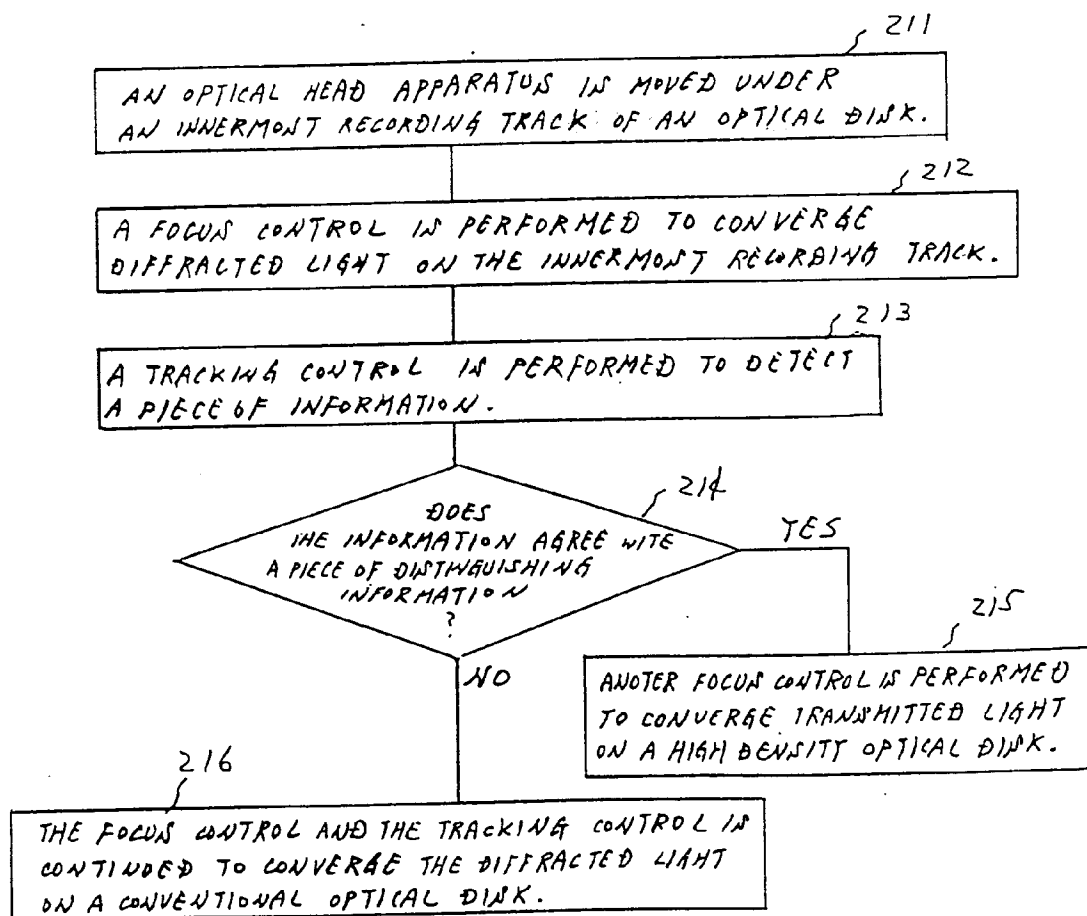 211
AN OPTICAL HEAD APPARATUS IS MOVED UNDER
AN INNERMOST RECORDING TRACK OF AN OPTICAL DISK.
212
A FOCUS CONTROL IS PERFORMED TO CONVERGE
DIFFRACTED LIGHT ON THE INNERMOST RECORDING TRACK.
213
A TRACKING CONTROL IS PERFORMED TO DETECT
A PIECE OF INFORMATION.
214
DOES
THE INFORMATION AGREE WITE
A PIECE OF DISTINGUISHING
INFORMATION
?
YES
NO
215
ANOTER FOCUS CONTROL IS PERFORMED
TO CONVERGE TRANSMITTED LIGHT
ON A HIGH DENSITY OPTICAL DISK.
216
THE FOCUS CONTROL AND THE TRACKING CONTROL IS
CONTINDED TO CONVERGE THE DIFFRACTED LIGHT
ON A CONVENTIONAL OPTICAL DISK.